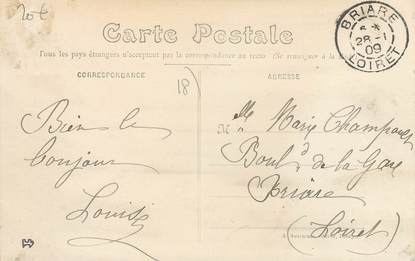 20€
Carte Postale
Tous les pays étrangers n'acceptent pas la correspondance au recto
BRIARE
28-1
09
LOIRET
CORRESPONDANCE
ADRESSE
18
Bien le
bonjour
Louis
Mlle Marie
Boulᵈ de la Gare
Briare
(Loiret)